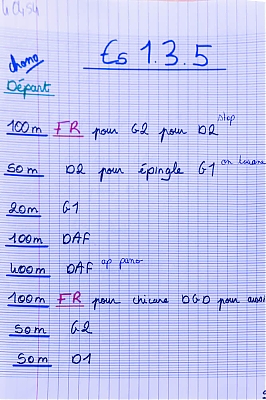 chrono
Es 1.3.5
Départ
100m FR pour G2 pour D2 stop
50m D2 pour épingle G1
20m G1
100m DAF
400m DAF ap pano
100m FR pour chicane DGD pour
50m G2
50m D1